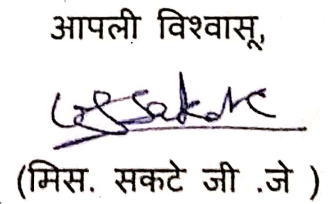 आपली विश्वासू,
(मिस. सकटे जी .जे )